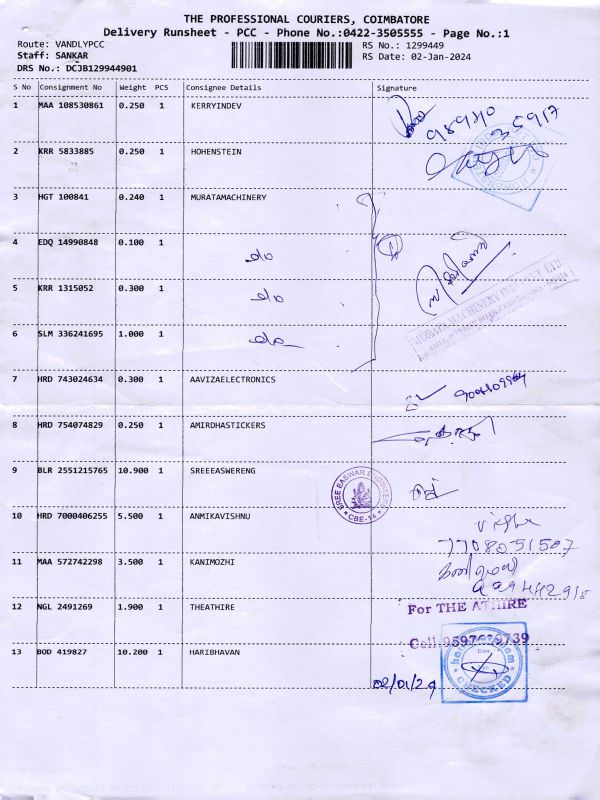 THE PROFESSIONAL COURIERS, COIMBATORE
Delivery Runsheet - PCC - Phone No.:0422-3505555 - Page No.:1
Route: VANDLYPCC RS No.: 1299449
Staff: SANKAR RS Date: 02-Jan-2024
DRS No.: DCJB129944901
S No Consignment No Weight PCS Consignee Details Signature
1 MAA 108530861 0.250 1 KERRYINDEV
2 KRR 5833885 0.250 1 HOHENSTEIN
3 HGT 100841 0.240 1 MURATAMACHINERY
4 EDQ 14990848 0.100 1 do
5 KRR 1315052 0.300 1 do
6 SLM 336241695 1.000 1 do
7 HRD 743024634 0.300 1 AAVIZAELECTRONICS
8 HRD 754074829 0.250 1 AMIRDHASTICKERS
9 BLR 2551215765 10.900 1 SREEEASWERENG
SREE EASWAR ENGINEERS
CBE-14
10 HRD 7000406255 5.500 1 ANMIKAVISHNU
7708051507
11 MAA 572742298 3.500 1 KANIMOZHI
12 NGL 2491269 1.900 1 THEATHIRE For THE ATHIRE
13 BOD 419827 10.200 1 HARIBHAVAN
CHECKED
02/01/24